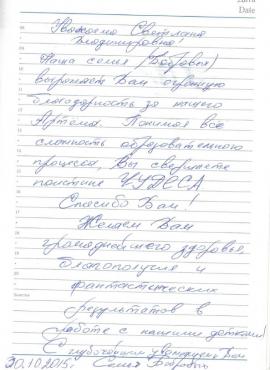 Date
Уважаемая Светлана
Владимировна!
Наша семья (Бобровых)
выражает Вам огромную
благодарность за нашего
Артема. Понимая всю
сложность образовательного
процесса, Вы свершаете
поистине ЧУДЕСА
Спасибо Вам!
Желаем Вам
громаднейшего здоровья,
благополучия и
фантастических
результатов в
работе с нашими детьми!
С глубочайшим уважением к Вам
20.10.2015г Семья Бобровых